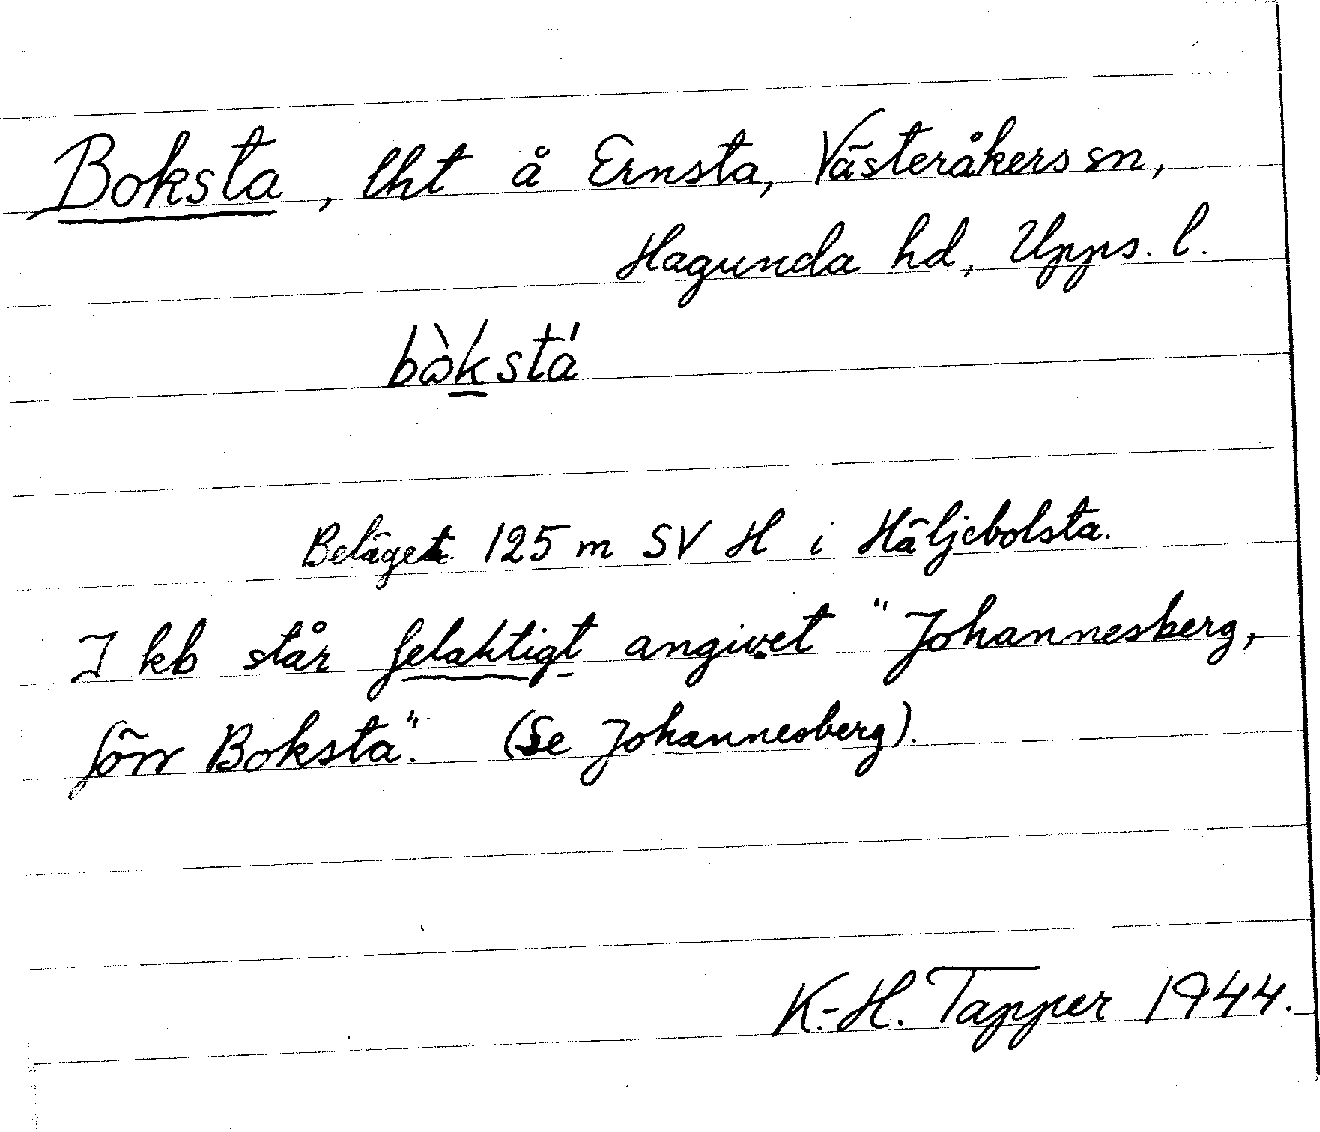 Boksta, lht å Ernsta, Västeråkers sn,
Hagunda hd, Upps. l.
bòkstá
Beläget 125 m SV H i Häljebolsta.
I kb står felaktigt angivet "Johannesberg,
förr Boksta". (Se Johannesberg).
K.-H. Tapper 1944.